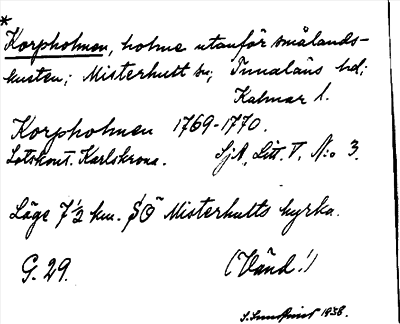 *
Korpholmen, holme utanför smålands-
kusten; Misterhult sn; Tunaläns hd;
Kalmar l.
Korpholmen 1769-1770.
Lotskont. Karlskrona. SjA, Litt. T, N:o 3.
Läge 7½ km. SÖ Misterhults kyrka.
G. 29. (Vänd!)
S. Sundqvist 1938.